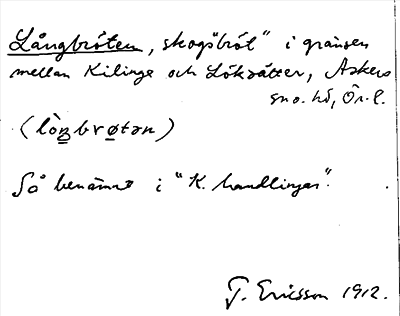 Långbröten, skogs"bröt" i gränsen
mellan Kilinge och Löksätter, Askers
sn o. hd, Ör. l.
(lòŋbrøtən)
Så benämnt i "K. handlingar".
T. Ericsson 1912.